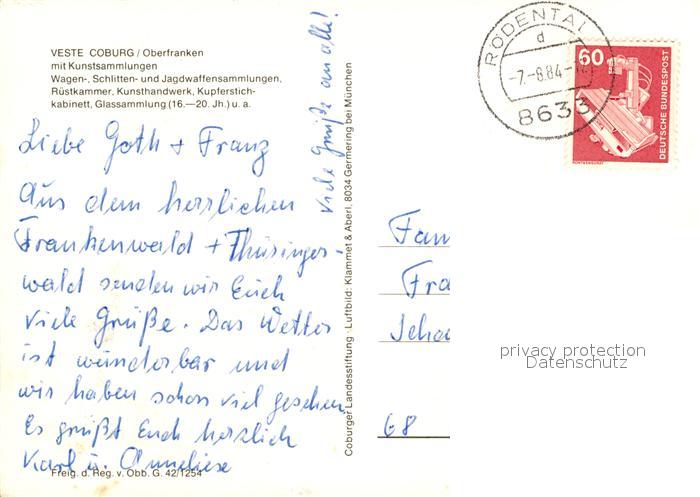 VESTE COBURG / Oberfranken
mit Kunstsammlungen
Wagen-, Schlitten- und Jagdwaffensammlungen,
Rüstkammer, Kunsthandwerk, Kupferstich-
kabinett, Glassammlung (16.—20. Jh.) u. a.
Liebe Goth + Franz
Aus dem herrlichen
Frankenwald + Thüringer-
wald senden wir Euch
viele Grüße. Das Wetter
ist wunderbar und
wir haben schon viel gesehen
Es grüßt Euch herzlich
Karl u. Anneliese
Freig. d. Reg. v. Obb. G. 42/1254
Viele Grüße an alle!
Coburger Landesstiftung · Luftbild: Klammet & Aberl, 8034 Germering bei München
RÖDENTAL
d
-7.-8.84-
8633
60
DEUTSCHE BUNDESPOST
RÖNTGENGERÄT
Fam
Fra
Scha
68
privacy protection
Datenschutz